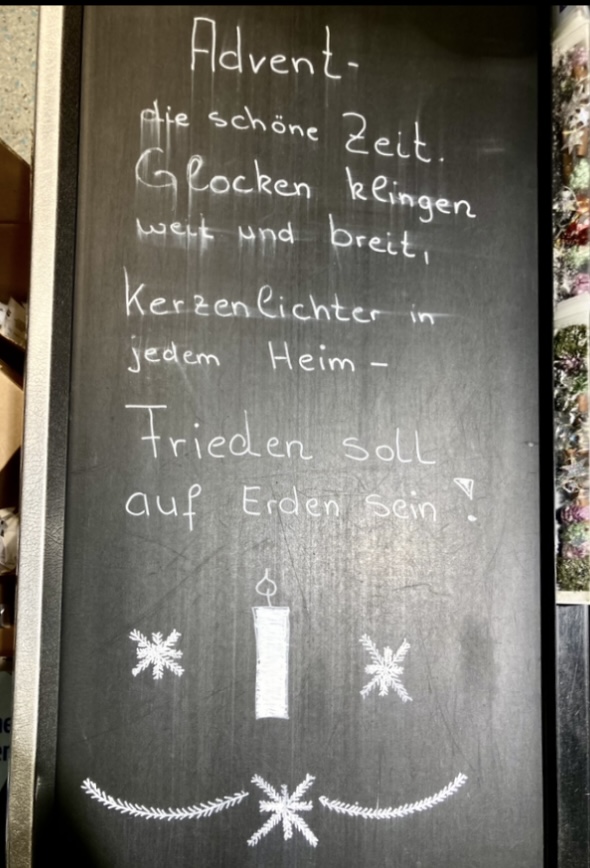 Advent-
die schöne Zeit.
Glocken klingen
weit und breit,
Kerzenlichter in
jedem Heim -
Frieden soll
auf Erden sein!